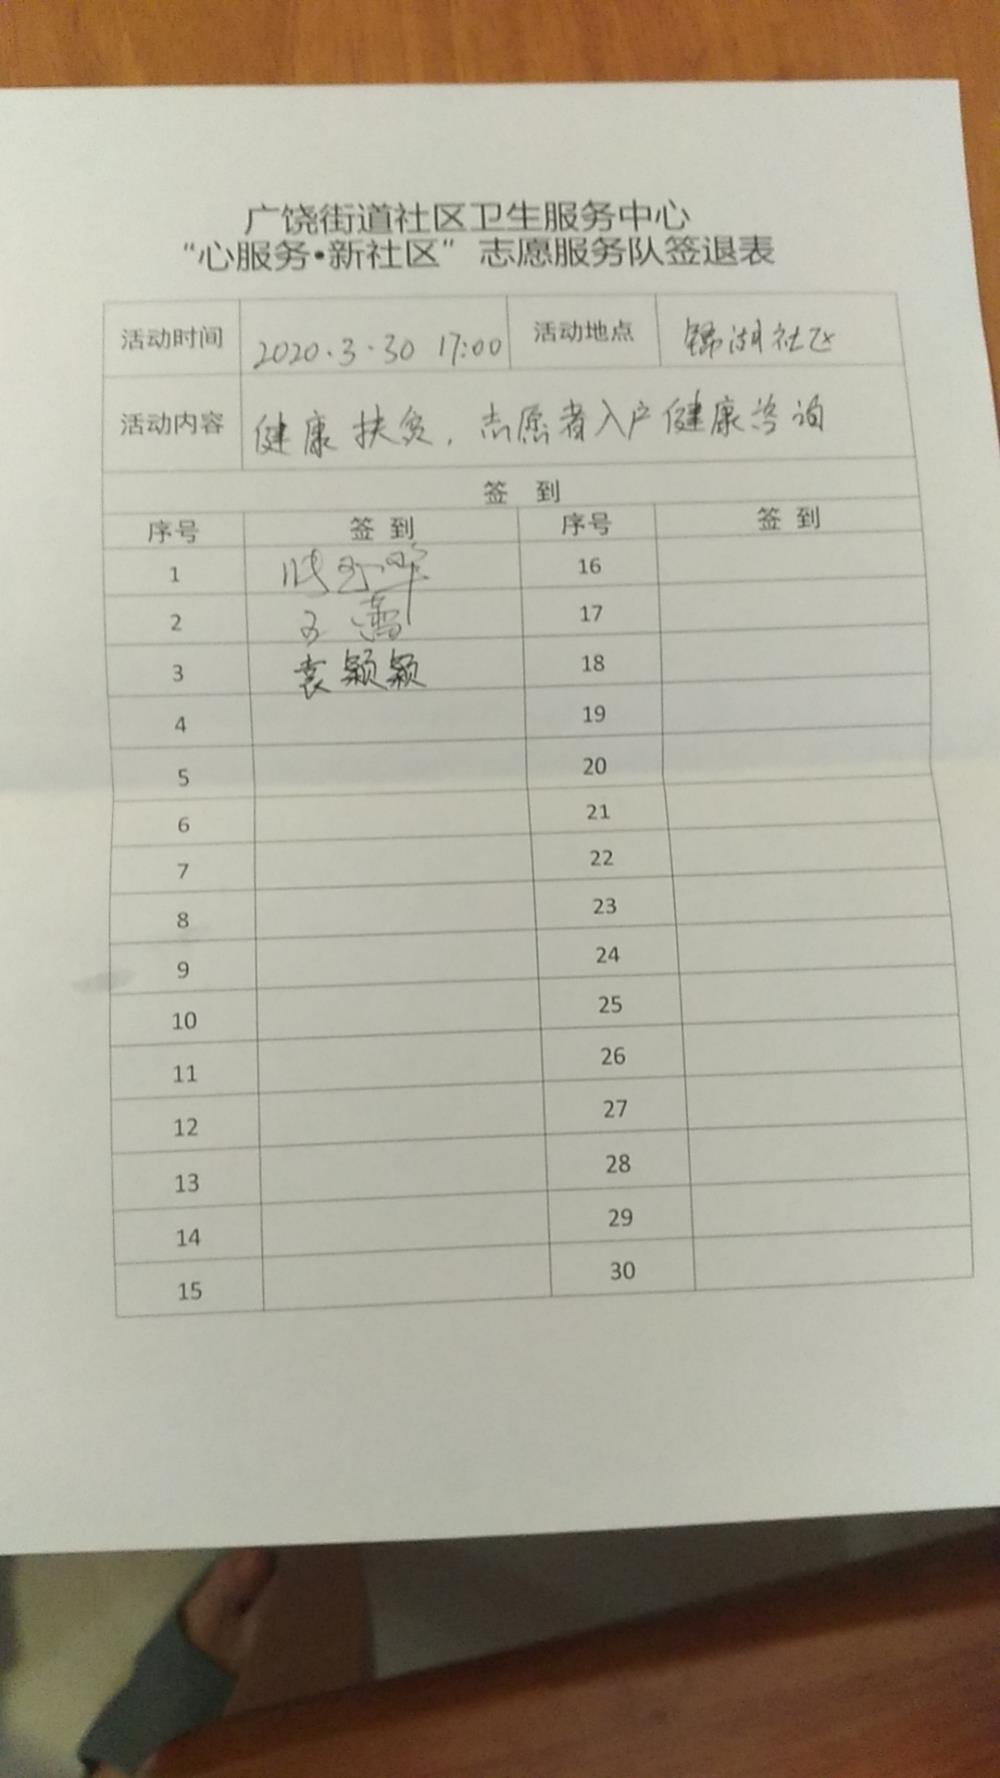 广饶街道社区卫生服务中心
“心服务•新社区”志愿服务队签退表
活动时间 2020.3.30 17:00 活动地点 锦湖社区
活动内容 健康扶贫，志愿者入户健康咨询
签 到
序号 签 到 序号 签 到
1 16
2 王 17
3 袁颖颖 18
4 19
5 20
6 21
7 22
8 23
9 24
10 25
11 26
12 27
13 28
14 29
15 30